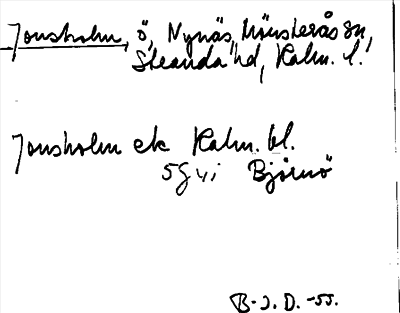 Jonsholm, ö, Nynäs, Mönsterås sn,
Stranda hd, Kalm. l.
Jonsholm ek Kalm. bl.
5G vi Björnö
B-J. D. -55.